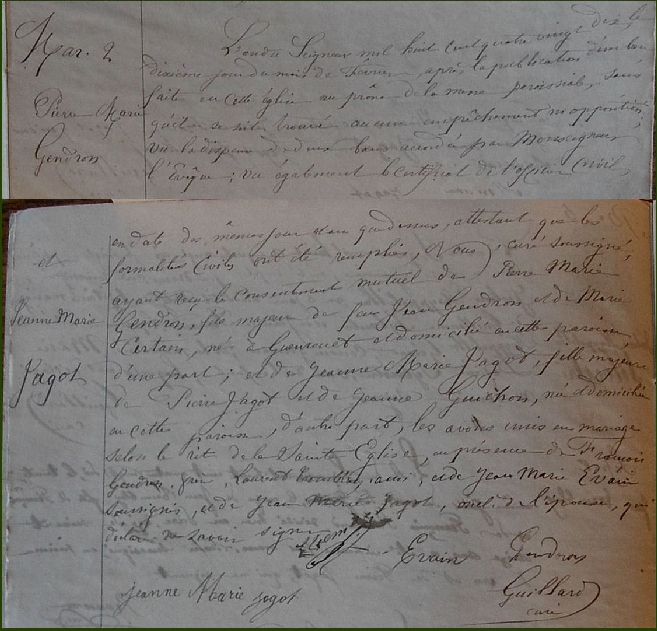 Mar. 2
Pierre Marie
Gendron
et
Jeanne Marie
Jagot
L'an du Seigneur mil huit cent quatre vingt dix le
dixième jour du mois de Février, après la publication d'un ban
faite en cette église au prône de la messe paroissiale, sans
qu'il se soit trouvé aucun empêchement ni opposition,
vu la dispense de deux bans accordée par Monseigneur
l'Evêque ; vu également le certificat de l'officier Civil,
en date des mêmes jour et an que dessus, attestant que les
formalités Civiles ont été remplies, Nous, curé soussigné,
ayant reçu le Consentement mutuel de Pierre Marie
Gendron, fils majeur de feu Jean Gendron et de Marie
Certain, né à Guenrouet et domicilié en cette paroisse,
d'une part ; et de Jeanne Marie Jagot, fille majeure
de Pierre Jagot et de Jeanne Guichon, née et domiciliée
en cette paroisse, d'autre part, les avons unis en mariage
selon le rit de la Sainte Eglise, en présence de François
Gendron, Laurent ami, et de Jean Marie Evain
soussignés, et de Jean Marie Jagot, oncl. de l'épouse, qui
déclare ne savoir signer
Evain Gendron
Jeanne Marie Jagot
Guillard
curé